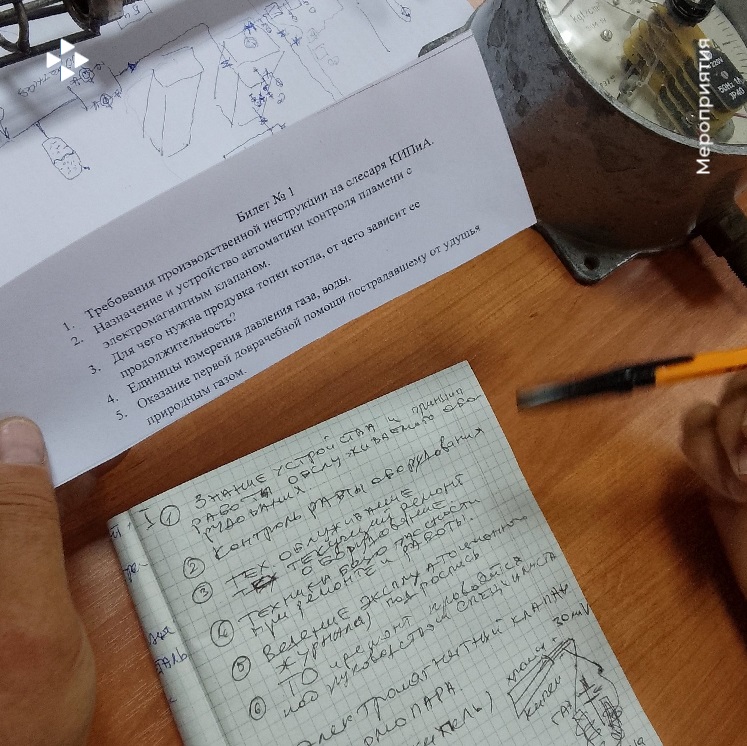 Мероприятия
220V
50Hz
IP40
Билет № 1
1. Требования производственной инструкции на слесаря КИПиА.
2. Назначение и устройство автоматики контроля пламени с
электромагнитным клапаном.
3. Для чего нужна продувка топки котла, от чего зависит ее
продолжительность?
4. Единицы измерения давления газа, воды.
5. Оказание первой доврачебной помощи пострадавшему от удушья
природным газом.
I ① ЗНАНИЕ УСТРОЙСТВА и принцип
РАБОТЫ ОБСЛУЖИВАЕМОГО ОБО-
РУДОВАНИЯ
② Контроль РАБОТЫ оборудования
③ ТЕХ. ОБСЛУЖИВАНИЕ
ТЕКУЩИЙ РЕМОНТ
ОБОРУДОВАНИЕ.
④ ТЕХНИКА БЕЗОПАСНОСТИ
при РЕМОНТЕ и РАБОТЫ.
⑤ ВЕДЕНИЕ ЭКСПЛУАТОЦИОННОГО
ЖУРНАЛА под роспись
⑥ ТО ремонт проводятся
под руководством специалиста
ЭЛЕКТРОМАГНИТНЫЙ КЛАПАН
30 mV
ГАЗ